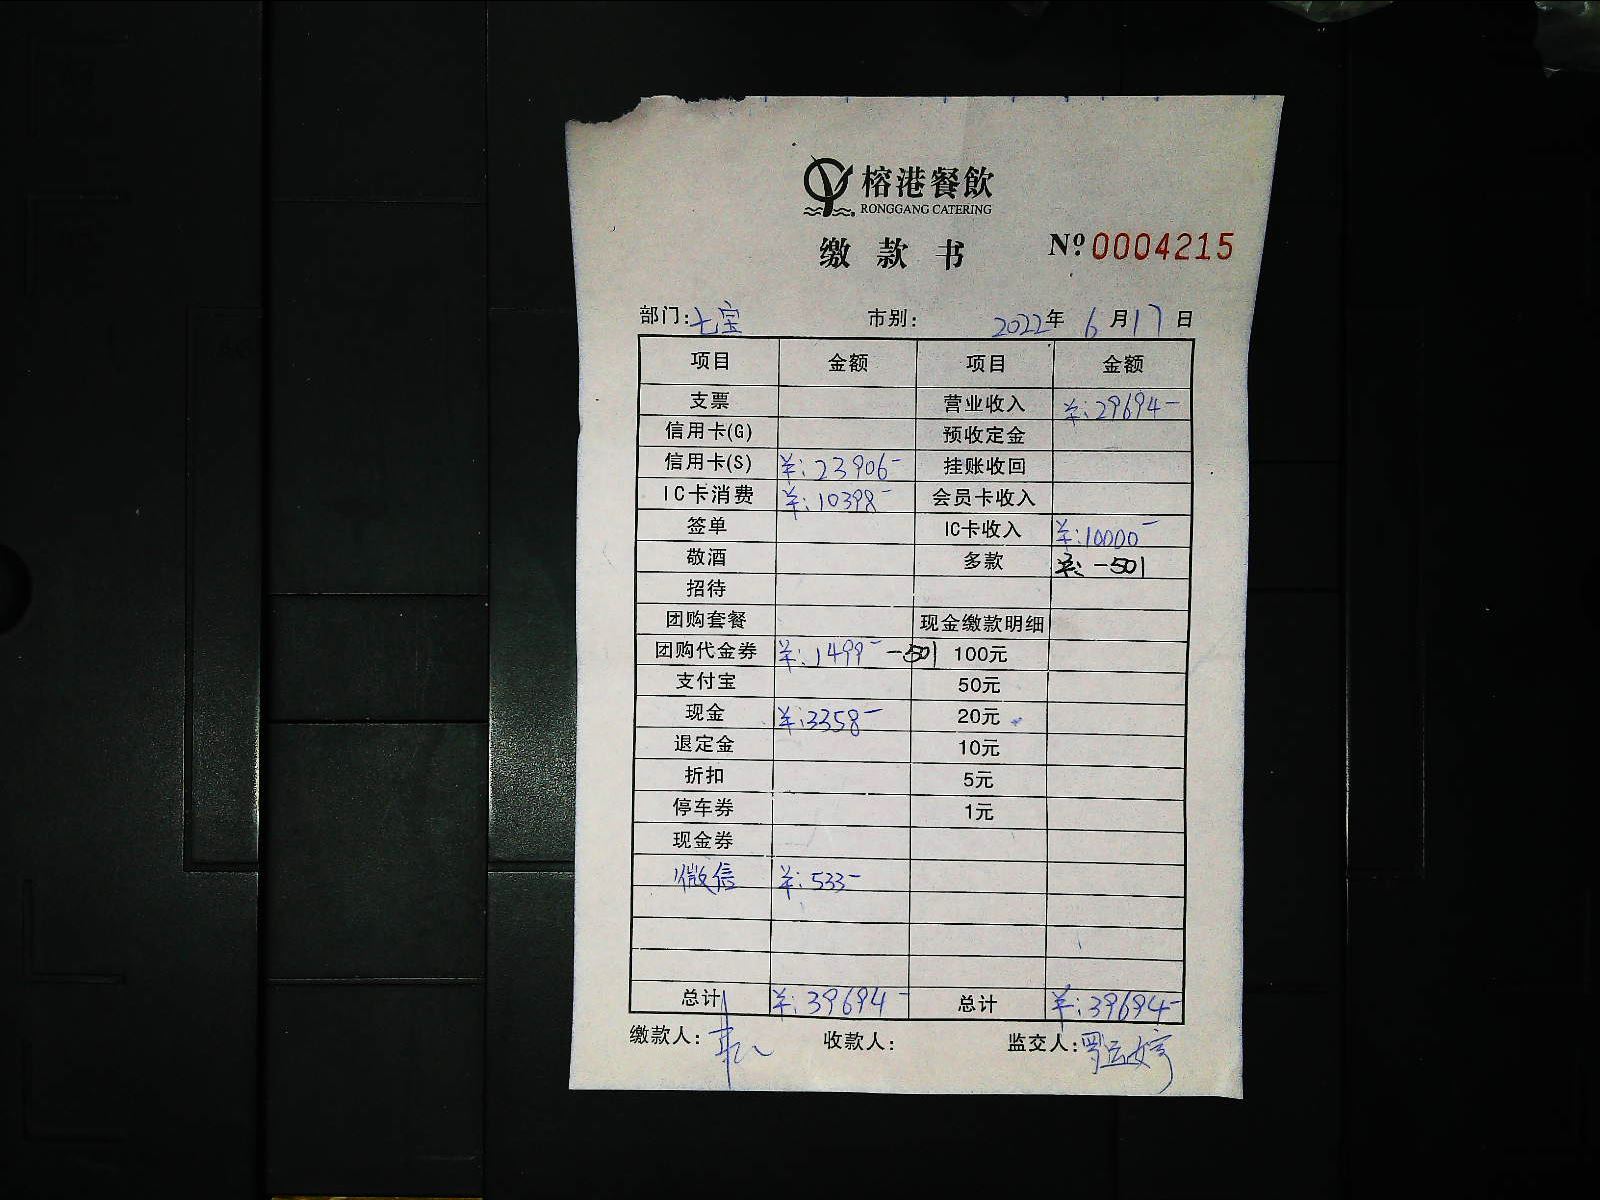 榕港餐飲
RONGGANG CATERING
缴款书 Nº 0004215
部门:七宝 市别: 2022年 6月17日
项目 金额 项目 金额
支票 营业收入 ¥:29694-
信用卡(G) 预收定金
信用卡(S) ¥:23906- 挂账收回
IC卡消费 ¥:10398- 会员卡收入
签单 IC卡收入 ¥:10000-
敬酒 多款 ¥: -501
招待
团购套餐 现金缴款明细
团购代金券 ¥:1499- -501 100元
支付宝 50元
现金 ¥:3358- 20元
退定金 10元
折扣 5元
停车券 1元
现金券
微信 ¥:533-
总计 ¥:39694- 总计 ¥:39694-
缴款人: 收款人: 监交人: